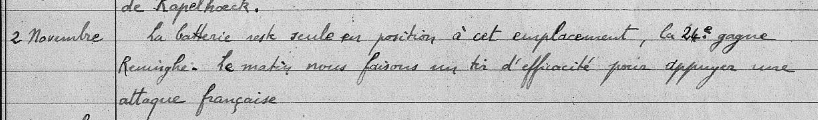 de Kapelhoeck.
2 Novembre La batterie reste seule en position à cet emplacement, la 24e gagne
Reninghe. Le matin nous faisons un tir d'efficacité pour appuyer une
attaque française